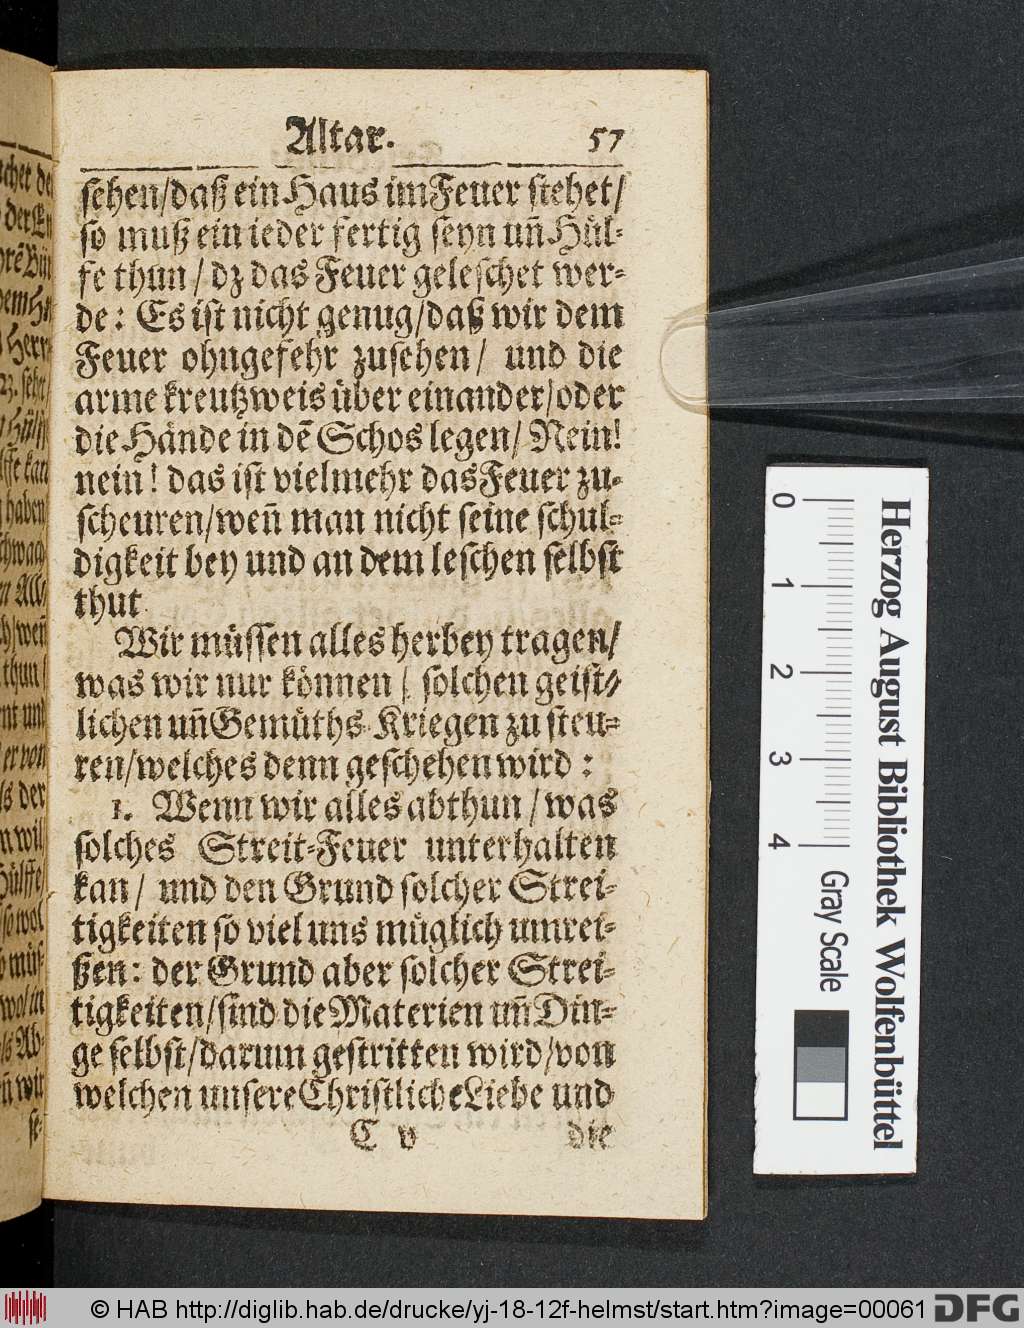 Altar. 57
sehen/daß ein Haus im Feuer stehet/
so muß ein ieder fertig seyn uñ Hül-
fe thun / dz das Feuer geleschet wer-
de: Es ist nicht genug/daß wir dem
Feuer ohngefehr zusehen/ und die
arme kreutzweis über einander/oder
die Hände in dẽ Schos legen/ Nein!
nein! das ist vielmehr das Feuer zu-
scheuren/weñ man nicht seine schul-
digkeit bey und an dem leschen selbst
thut
Wir müssen alles herbey tragen/
was wir nur können / solchen geist-
lichen uñ Gemüths-Kriegen zu steu-
ren/welches denn geschehen wird:
1. Wenn wir alles abthun / was
solches Streit-Feuer unterhalten
kan/ und den Grund solcher Strei-
tigkeiten so viel uns müglich umrei-
ßen: der Grund aber solcher Strei-
tigkeiten/sind die Materien uñ Din-
ge selbst/darum gestritten wird/von
welchen unsere Christliche Liebe und
C v die
0 1 2 3 4
Gray Scale
Herzog August Bibliothek Wolfenbüttel
© HAB http://diglib.hab.de/drucke/yj-18-12f-helmst/start.htm?image=00061
DFG